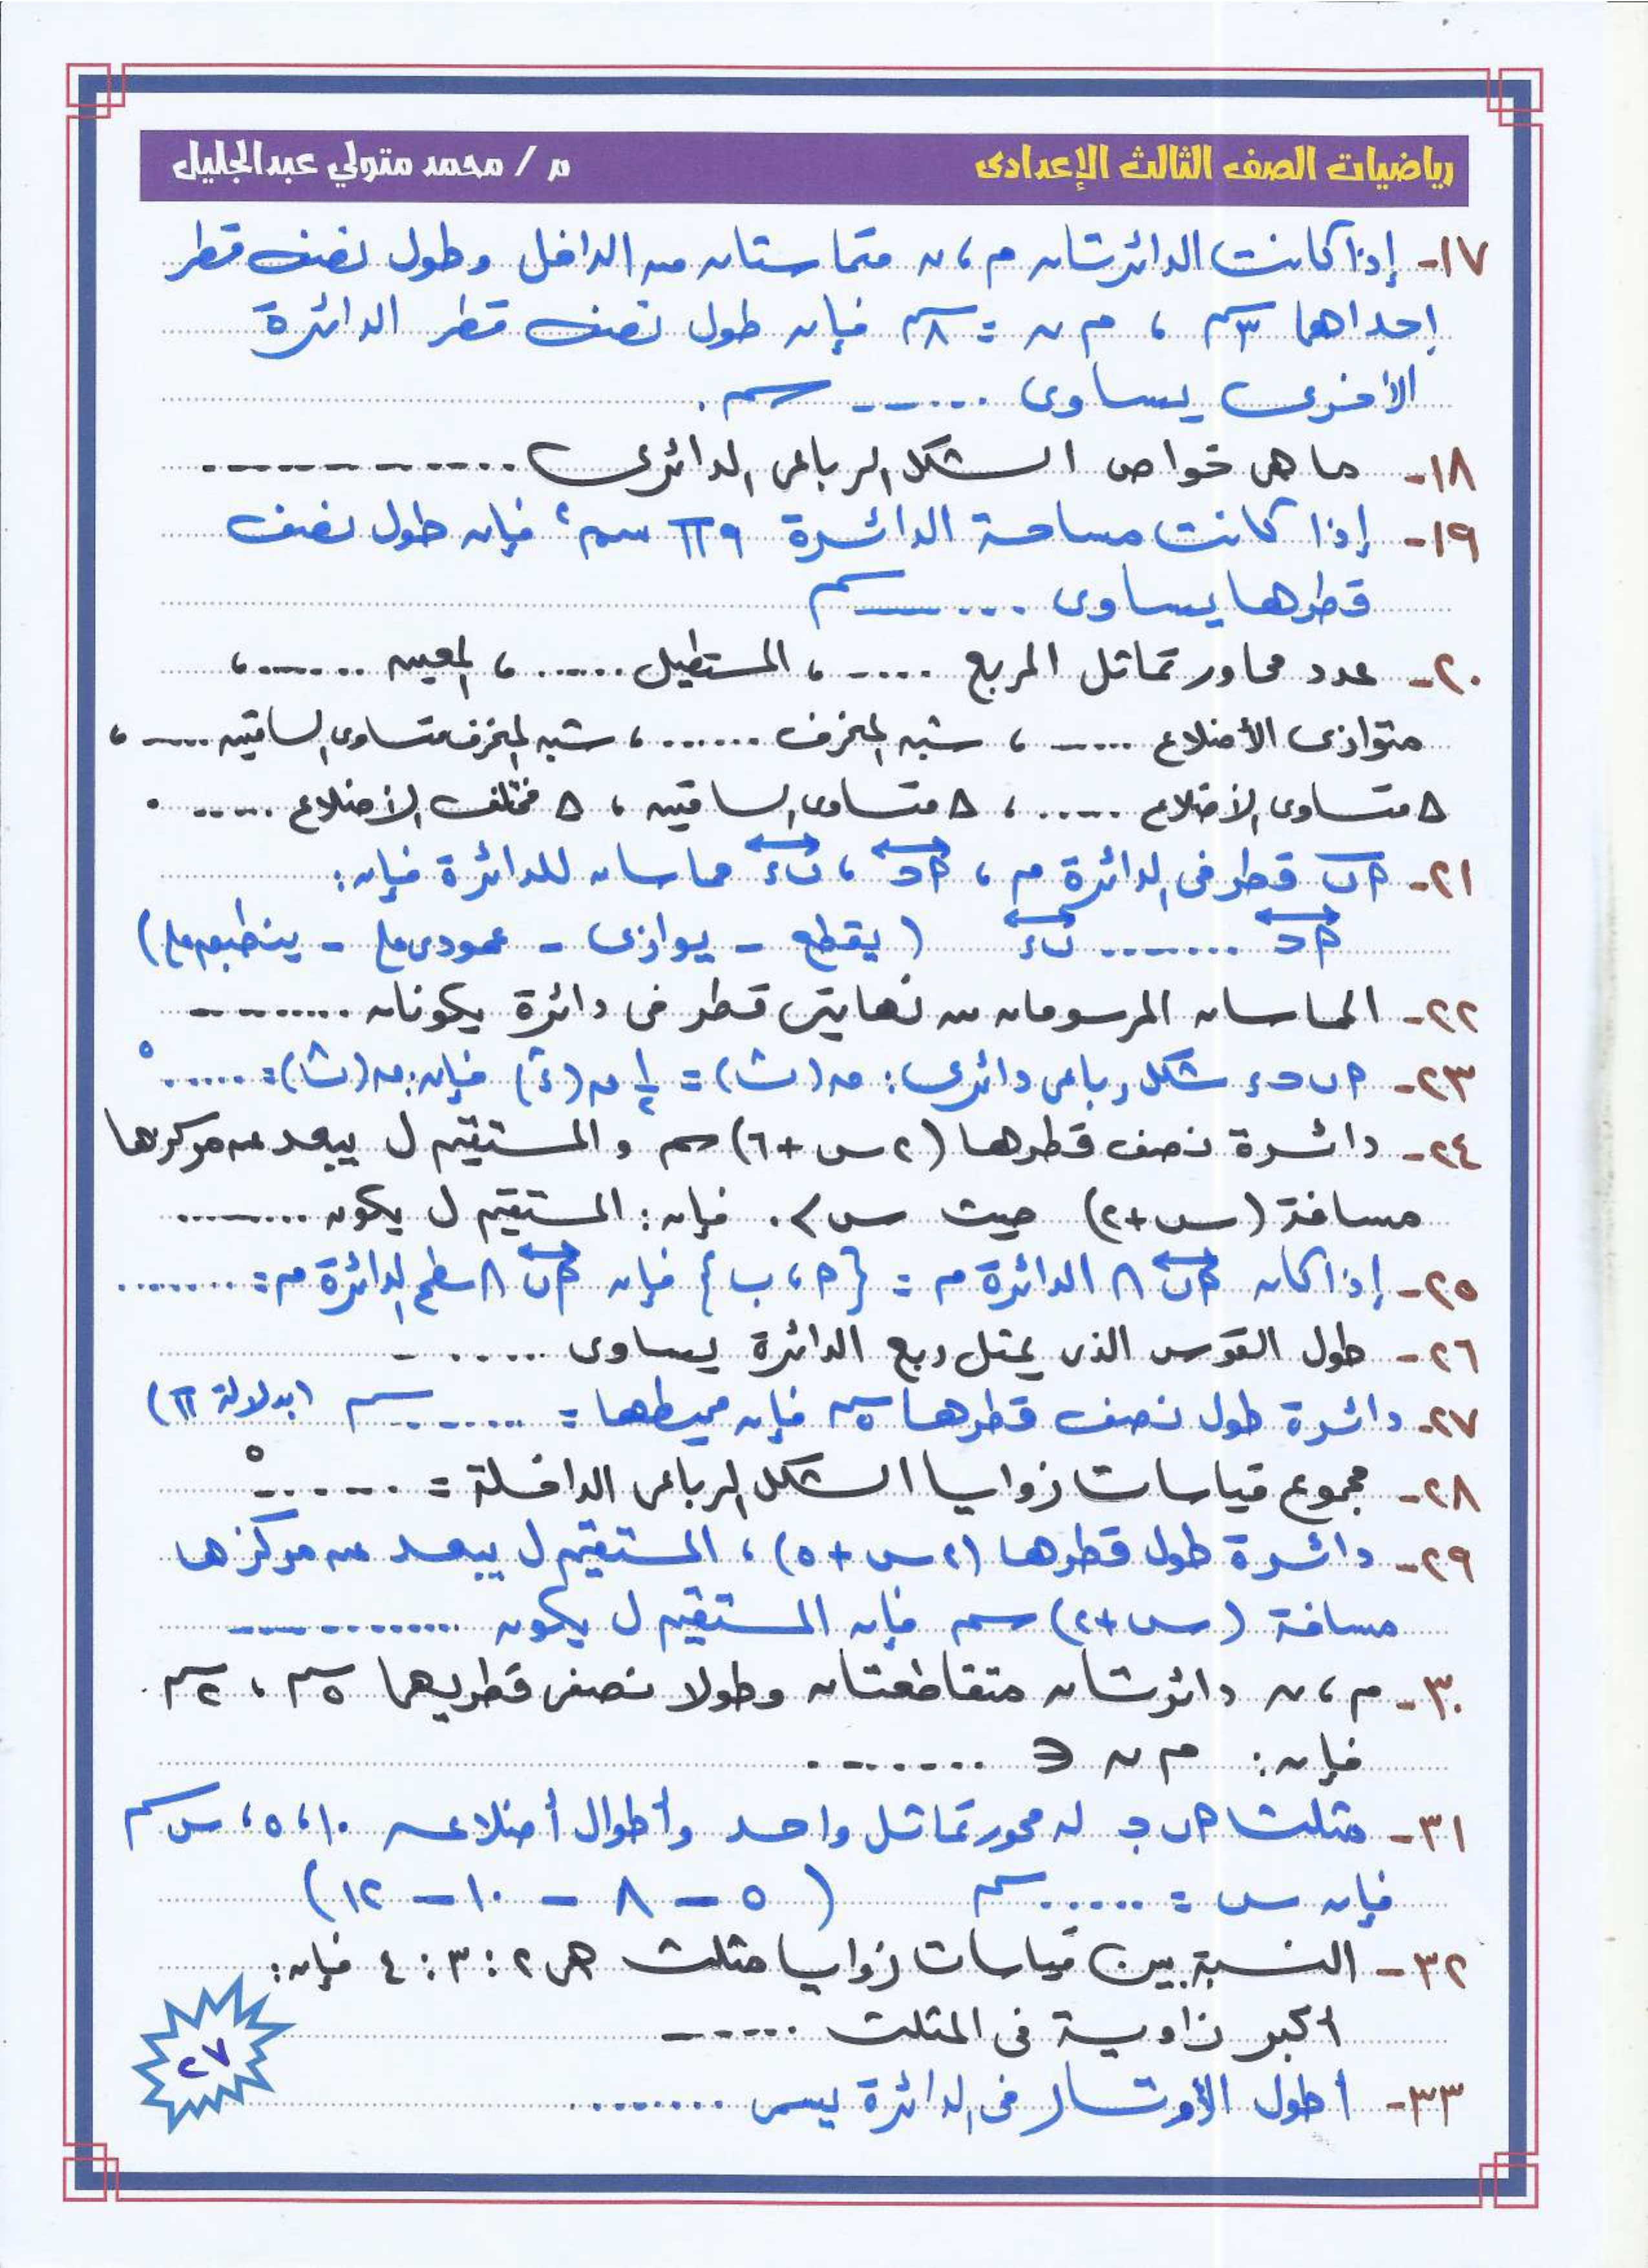 رياضيات الصف الثالث الإعدادى
م / محمد متولي عبدالجليل
١٧- إذا كانت الدائرتان م ، ن متماستان من الداخل وطول نصف قطر
إحداهما ٣سم ، م ن = ٨سم فإن طول نصف قطر الدائرة
الأخرى يساوى ...... سم .
١٨- ما هى خواص الشكل الرباعى الدائرى ............
١٩- إذا كانت مساحة الدائرة ٩π سم٢ فإن طول نصف
قطرها يساوى ...... سم
٢٠- عدد محاور تماثل المربع ...... ، المستطيل ...... ، المعين ...... ،
متوازى الأضلاع ...... ، شبه المنحرف ...... ، شبه المنحرف متساوى الساقين ...... ،
Δ متساوى الأضلاع ...... ، Δ متساوى الساقين ، Δ مختلف الأضلاع ...... .
٢١- أب قطر فى الدائرة م ، أحـ ، بء مماسان للدائرة فإن :
أحـ ........ بء ( يقطع - يوازى - عمودى على - ينطبق على )
٢٢- المماسان المرسومان من نهايتى قطر فى دائرة يكونان ..........
٢٣- أ ب حـ ء شكل رباعى دائرى : ق(ب̂) = ½ ق(ء̂) فإن : ق(ب̂) = ......°
٢٤- دائرة نصف قطرها (٢س + ٦) سم والمستقيم ل يبعد عن مركزها
مسافة (س + ٢) حيث س > ٠ فإن : المستقيم ل يكون ..........
٢٥- إذا كان أب ∩ الدائرة م = {أ ، ب} فإن أب ∩ سطح الدائرة م = ........
٢٦- طول القوس الذى يمثل ربع الدائرة يساوى ......
٢٧- دائرة طول نصف قطرها ٥سم فإن محيطها = ...... سم (بدلالة π)
٢٨- مجموع قياسات زوايا الشكل الرباعى الداخلة = ......°
٢٩- دائرة طول قطرها (٢س + ٥) ، المستقيم ل يبعد عن مركزها
مسافة (س + ٢) سم فإن المستقيم ل يكون ............
٣٠- م ، ن دائرتان متقاطعتان وطولا نصفى قطريهما ٥سم ، ٢سم .
فإن : م ن ∈ ........ .
٣١- مثلث أ ب جـ له محور تماثل واحد وأطوال أضلاعه ١٠ ، ٥ ، س سم
فإن س = ...... سم ( ٥ - ٨ - ١٠ - ١٢ )
٣٢- النسبة بين قياسات زوايا مثلث هى ٢ : ٣ : ٤ فإن :
أكبر زاوية فى المثلث ......
٣٣- أطول الأوتار فى الدائرة يسمى ........
٢٧